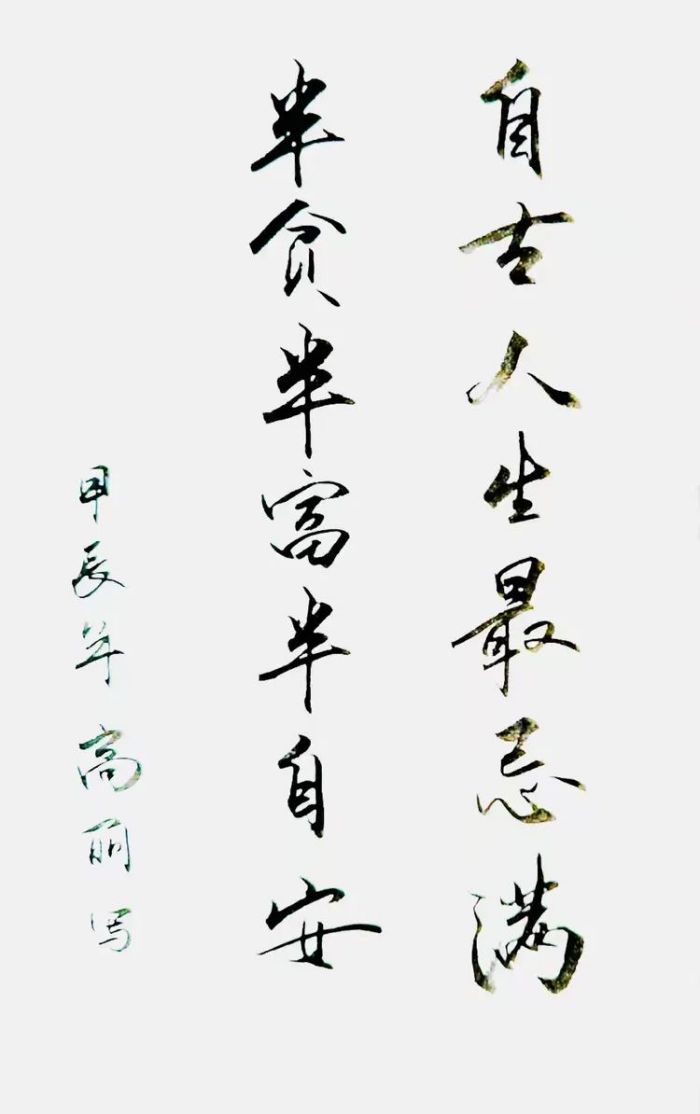 自古人生最忌满
半贪半富半自安
甲辰年高丽写